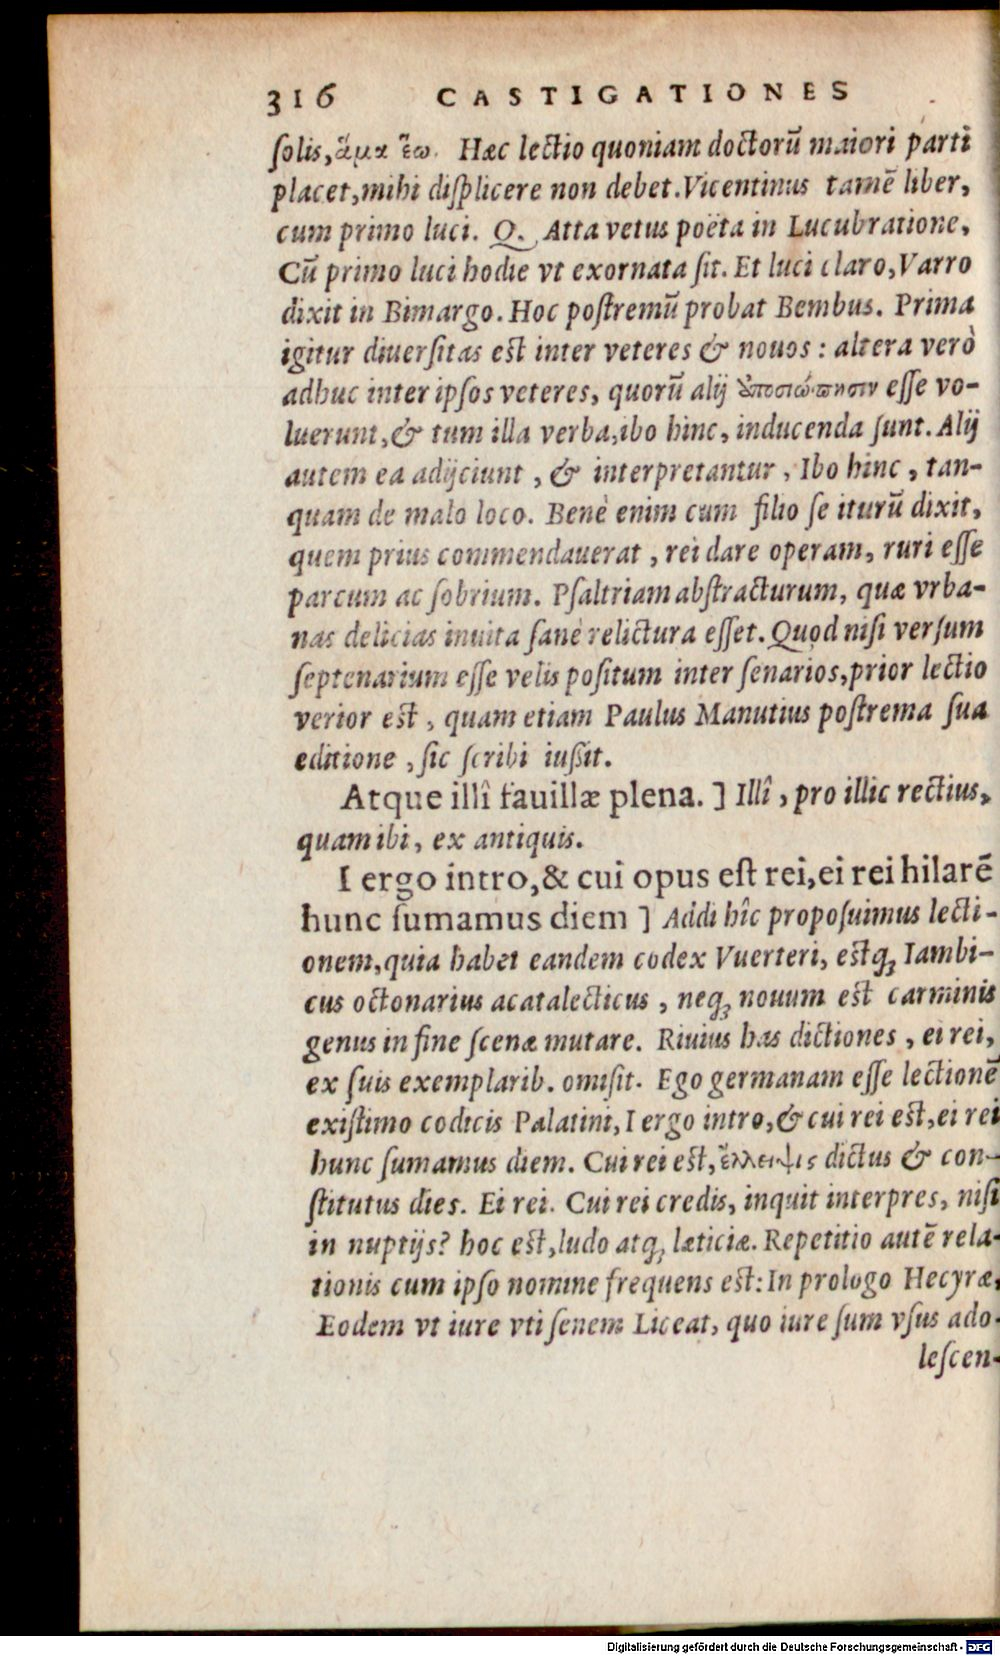 316 CASTIGATIONES
ſolis, ἅμα ἕω. Hæc lectio quoniam doctorũ maiori parti
placet, mihi diſplicere non debet. Vicentinus tamẽ liber,
cum primo luci. Q. Atta vetus poëta in Lucubratione,
Cũ primo luci hodie vt exornata ſit. Et luci claro, Varro
dixit in Bimargo. Hoc poſtremũ probat Bembus. Prima
igitur diuerſitas eſt inter veteres & nouos: altera verò
adhuc inter ipſos veteres, quorũ alij ὑποσιώπησιν eſſe vo-
luerunt, & tum illa verba, ibo hinc, inducenda ſunt. Alij
autem ea adijciunt, & interpretantur, Ibo hinc, tan-
quam de malo loco. Benè enim cum filio ſe iturũ dixit,
quem prius commendauerat, rei dare operam, ruri eſſe
parcum ac ſobrium. Pſaltriam abſtracturum, quæ vrba-
nas delicias inuita ſanè relictura eſſet. Quod niſi verſum
ſeptenarium eſſe velis poſitum inter ſenarios, prior lectio
verior eſt, quam etiam Paulus Manutius poſtrema ſua
editione, ſic ſcribi iußit.
Atque illî fauillæ plena.] Illî, pro illic rectius,
quam ibi, ex antiquis.
I ergo intro, & cui opus eſt rei, ei rei hilarẽ
hunc ſumamus diem] Addi hîc propoſuimus lecti-
onem, quia habet eandem codex Vuerteri, eſtq́ꝫ Iambi-
cus octonarius acatalecticus, neqꝫ nouum eſt carminis
genus in fine ſcenæ mutare. Riuius has dictiones, ei rei,
ex ſuis exemplarib. omiſit. Ego germanam eſſe lectionẽ
exiſtimo codicis Palatini, I ergo intro, & cui rei eſt, ei rei
hunc ſumamus diem. Cui rei eſt, ἔλλειψις dictus & con-
ſtitutus dies. Ei rei. Cui rei credis, inquit interpres, niſi
in nuptijs? hoc eſt, ludo atqꝫ læticiæ. Repetitio autẽ rela-
tionis cum ipſo nomine frequens eſt: In prologo Hecyræ,
Eodem vt iure vti ſenem Liceat, quo iure ſum vſus ado-
leſcen-
Digitalisierung gefördert durch die Deutsche Forschungsgemeinschaft - DFG